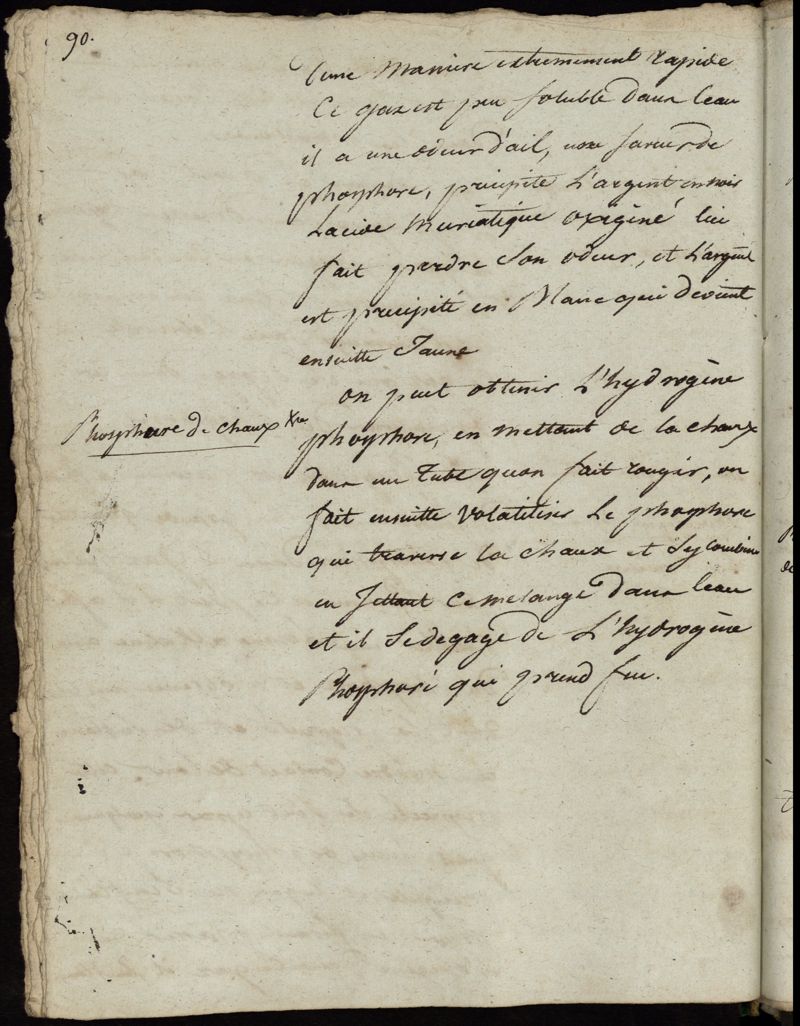 90.
d'une maniere extremement rapide
Ce gaz est peu soluble dans leau
il a une odeur d'ail, une saveur de
phosphore, precipite L'argent en noir
Lacide muriatique oxigené lui
fait perdre son odeur, et L'argent
est precipité en Blanc qui devient
ensuitte Jaune
on peut obtenir L'hydrogène
Phosphure de chaux
phosphore, en mettant de la chaux
dans un tube quon fait rougir, on
fait ensuitte volatiliser Le phosphore
qui traverse la chaux et Sy combine
en Jettant ce melange dans leau
et il se degage de L'hydrogène
Phosphoré qui prend feu.